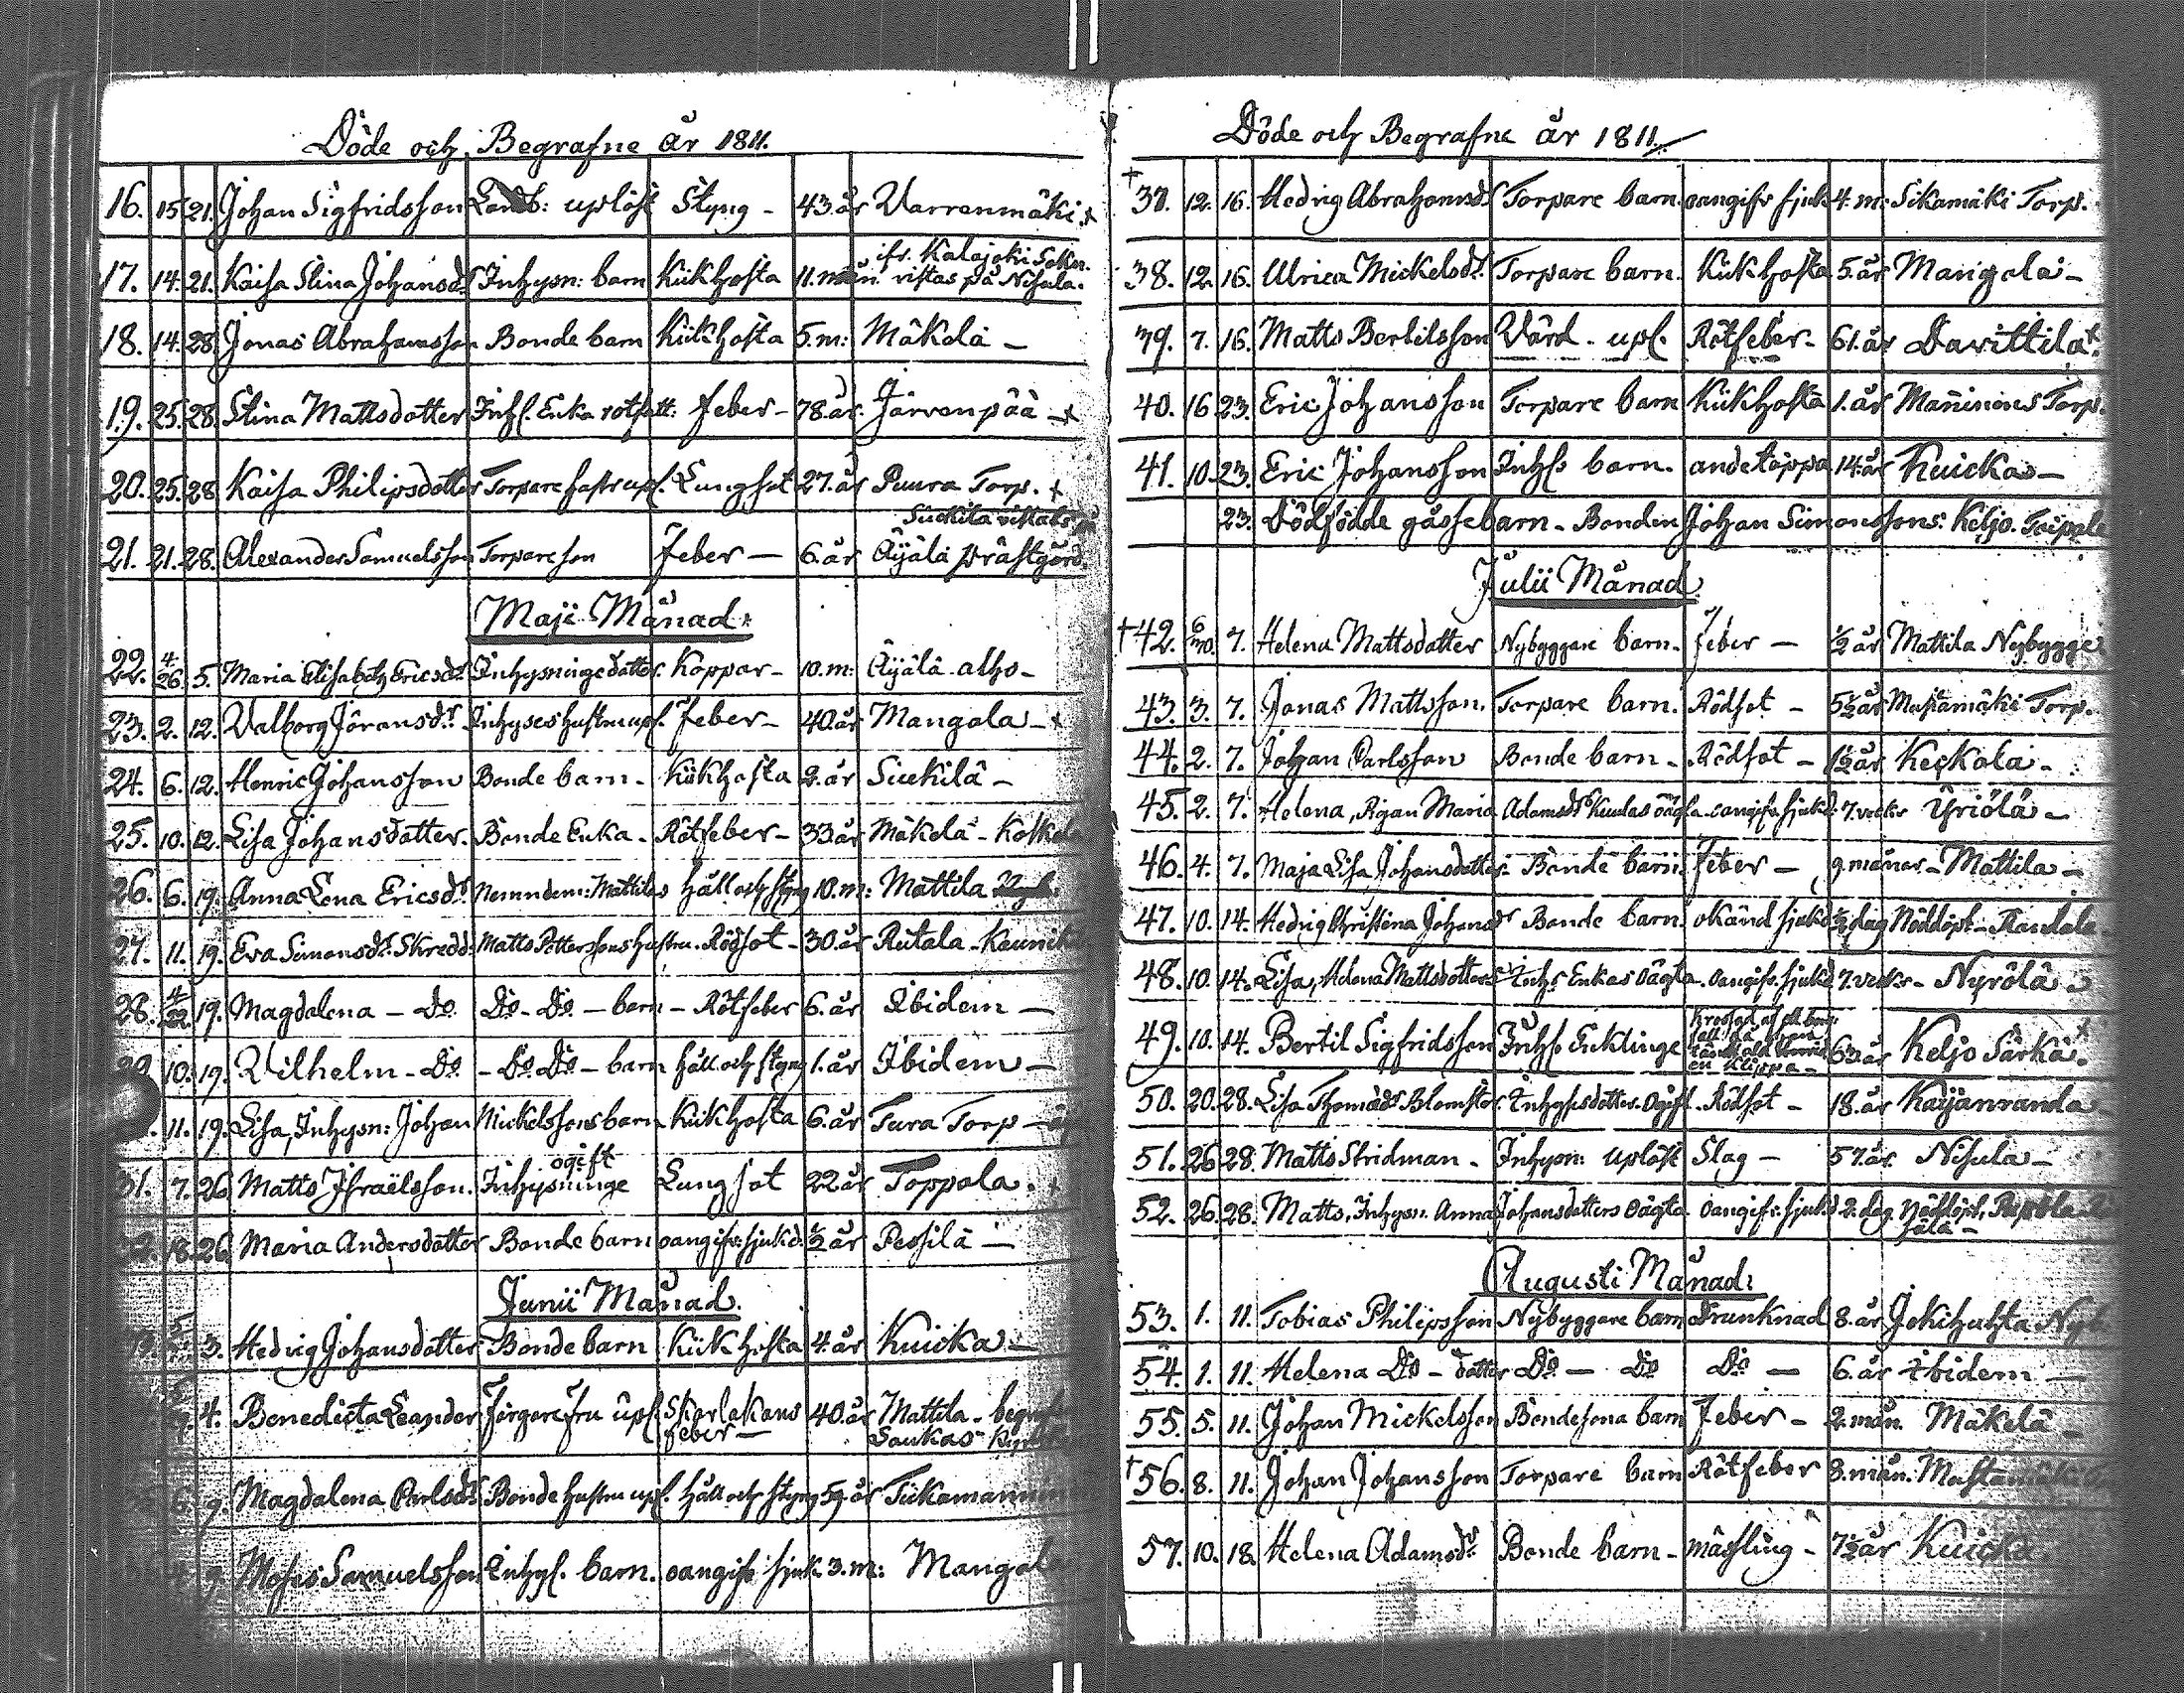 Döde och Begrafne år 1811.
16. 15 21. Johan Sigfridsson uplöst Styng - 43. år Varrenmäki
ifr. Kalajoki Sokn.
17. 14. 21. Kaisa Stina Johansdr Inhysn: barn Kikhosta 11. mån. vistas på Nisula.
18. 14. 28. Jonas Abrahamsson Bonde barn Kikhosta 5. m: Mäkelä -
19. 25. 28. Stina Mattsdotter Inhs. Enka rotfatt: feber - 78. år. Järvenpää -
20. 25. 28 Kaisa Philipsdotter Torpare hustr upl. Lungsot 27. år Puura Torp.
21. 21. 28. Alexander Samuelsson Torpare son Feber - 6. år Äijälä prästgård.
Maji Månad.
22. 4/26 5. Maria Elisabeth Ericsdr Inhysninge dotter. Koppar - 10. m: Äijälä - alho -
23. 2. 12. Valborg Jöransdr Inhyses hustru upl. Feber - 40. år Mangola -
24. 6. 12. Henric Johansson Bonde barn - Kikhosta 2. år Suckilä -
25. 10. 12. Lisa Johansdotter. Bonde Enka - Rötfeber - 33 år Mäkelä -
26. 6. 19. Anna Lena Ericsdr Nemndem: Mattilas håll och styng 10. m: Mattila
27. 11. 19. Eva Simonsdr Skredd: Matts Pettersons hustru. Rödsot - 30. år Rutala -
28. 4/22 19. Magdalena - Do Do - Do - barn - Rötfeber 6. år Ibidem -
10. 19. Vilhelm - Do - Do Do - barn håll och styng 1. år Ibidem -
11. 19. Lisa, Inhysn: Johan Mickelssons barn Kikhosta 6. år Tura Torp -
ogift
31. 7. 26 Matts Israëlsson. Inhysninge Lungsot 22 år Toppala.
18. 26 Maria Andersdotter Bonde barn oangifv: sjukd. 1/2 år Pessilä -
Junii Månad.
3. Hedvig Johansdotter Bonde barn Kikhosta 4. år Kuicka -
4. Benedicta Leander Färgare fru upl. Skarlakans 40. år Mattila -
feber - Saukas
9. Magdalena Carlsdr Bonde hustru upl. håll och styng 59. år
9. Moses Samuelsson Inhys. barn. oangifv sjuk. 3. m: Mangola
Döde och Begrafne år 1811.
37. 12. 16. Hedvig Abrahamsdr Torpare barn. oangifv sjukd 4. m: Sikamäki Torp.
38. 12. 16. Ulrica Mickelsdr Torpare barn. Kikhosta 5. år Mangola -
39. 7. 16. Matts Bertilsson Värd - upl. Rötfeber - 61. år Davittila
40. 16 23. Eric Johansson Torpare barn Kikhosta 1. år Manninens Torp.
41. 10. 23. Eric Johansson Inhs barn. andetäppa 14. år Kuicka -
23. Dödfödde gåssebarn - Bonden Johan Simonssons: Keljo.
Julii Månad
42. 6/30 7. Helena Mattsdotter Nybyggare barn. Feber - 1/2 år Mattila Nybygge
43. 3. 7. Jonas Mattsson. Torpare barn. Rödsot - 5 1/2 år Mustamäki Torp.
44. 2. 7. Johan Carlsson Bonde barn - Rödsot - 1 1/2 år Keckola -
45. 2. 7. Helena, Pigan Maria Adamsdr oangifv sjukd 7. veckor Yriölä -
46. 4. 7. Maja Lisa Johansdotter. Bonde barn. Feber - 9. månar - Mattila -
47. 10. 14. Hedvig Christina Johansdr Bonde barn. okänd sjukd 1/2 dag Nöddöpt - Randala
48. 10. 14. Lisa, Helena Mattsdotters Inhs Enkas oägta. oangifv. sjukd 7. veckr - Nyrölä -
49. 10. 14. Bertil Sigfridsson Inhs. Enkling 63. år Keljo Särkä.
50. 20. 28. Lisa Thomædr Blomster. Inhyses dotter. Ogift. Rödsot - 18. år
51. 26 28. Matts Stridman - Inhysn: uplöst Slag - 57. år. Nisula -
52. 26. 28. Matts, Inhysn. Anna Johansdotters Oägta. Oangifv: sjukd 2. dag. Nöddöpt,
Augusti Månad:
53. 1. 11. Tobias Philipsson Nybyggare barn Drunknad 8. år Jokihuhta Nyb.
54. 1. 11. Helena Do - dotter Do - Do Do - 6. år ibidem -
55. 5. 11. Johan Mickelsson Bondesons barn Feber - 2. mån. Mäkelä -
56. 8. 11. Johan Johansson Torpare barn Rötfeber 3. mån. Mustamäki
57. 10. 18. Helena Adamsdr Bonde barn - mässling - 7 1/2 år Kuicka